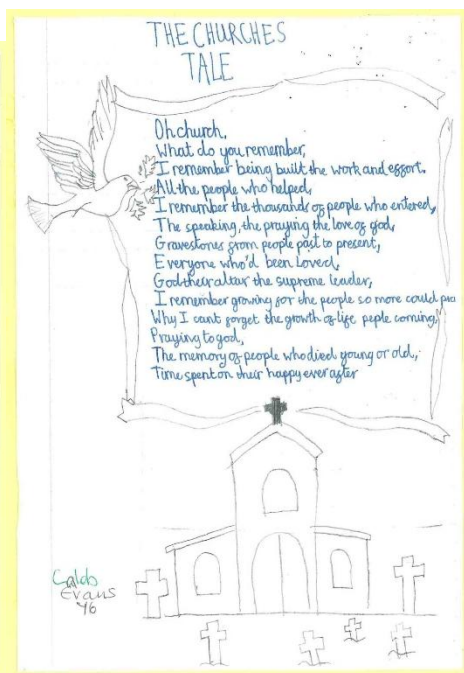 THE CHURCHES
TALE
Oh church,
What do you remember,
I remember being built the work and effort.
All the people who helped,
I remember the thousands of people who entered,
The speaking, the praying the love of god,
Gravestones from people past to present,
Everyone who'd been Loved,
God their altar the supreme leader,
I remember growing for the people so more could pra
Why I cant forget the growth of life peple coming,
Praying to god,
The memory of people who died young or old,
Time spent on their happy ever after
Caleb
Evans
Y6